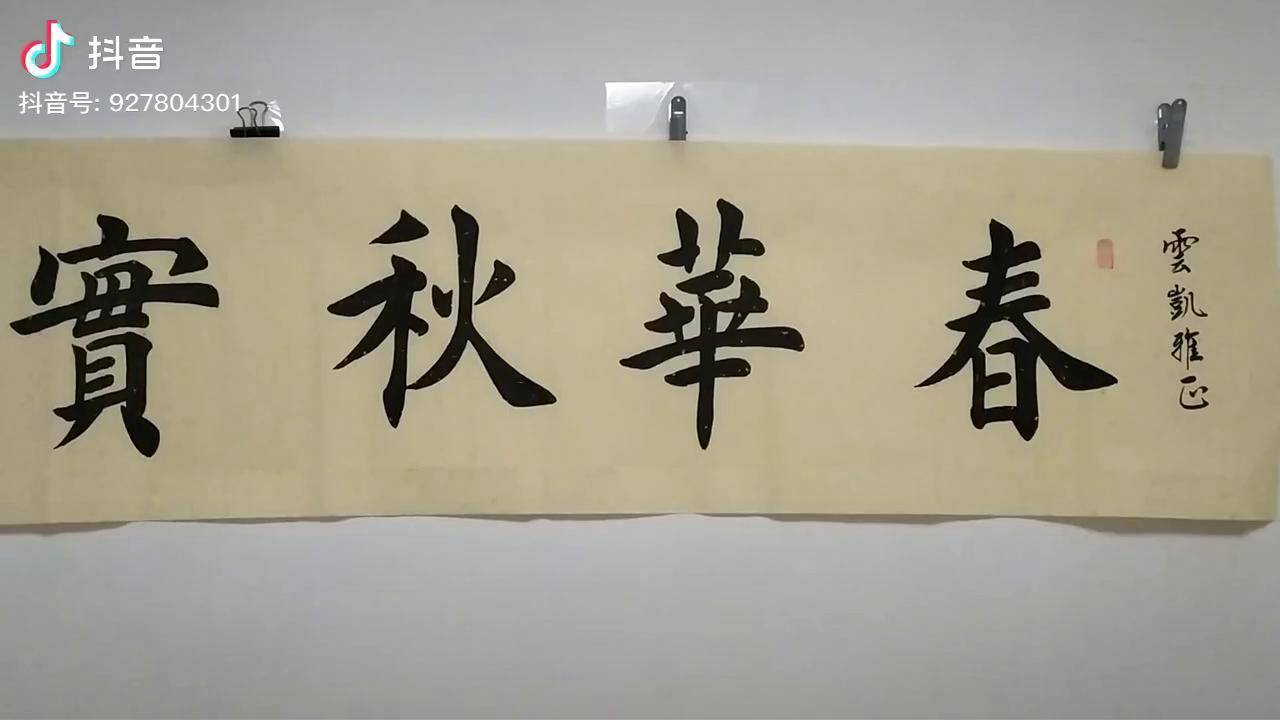 抖音
抖音号: 927804301
雲凱雅正
春華秋實